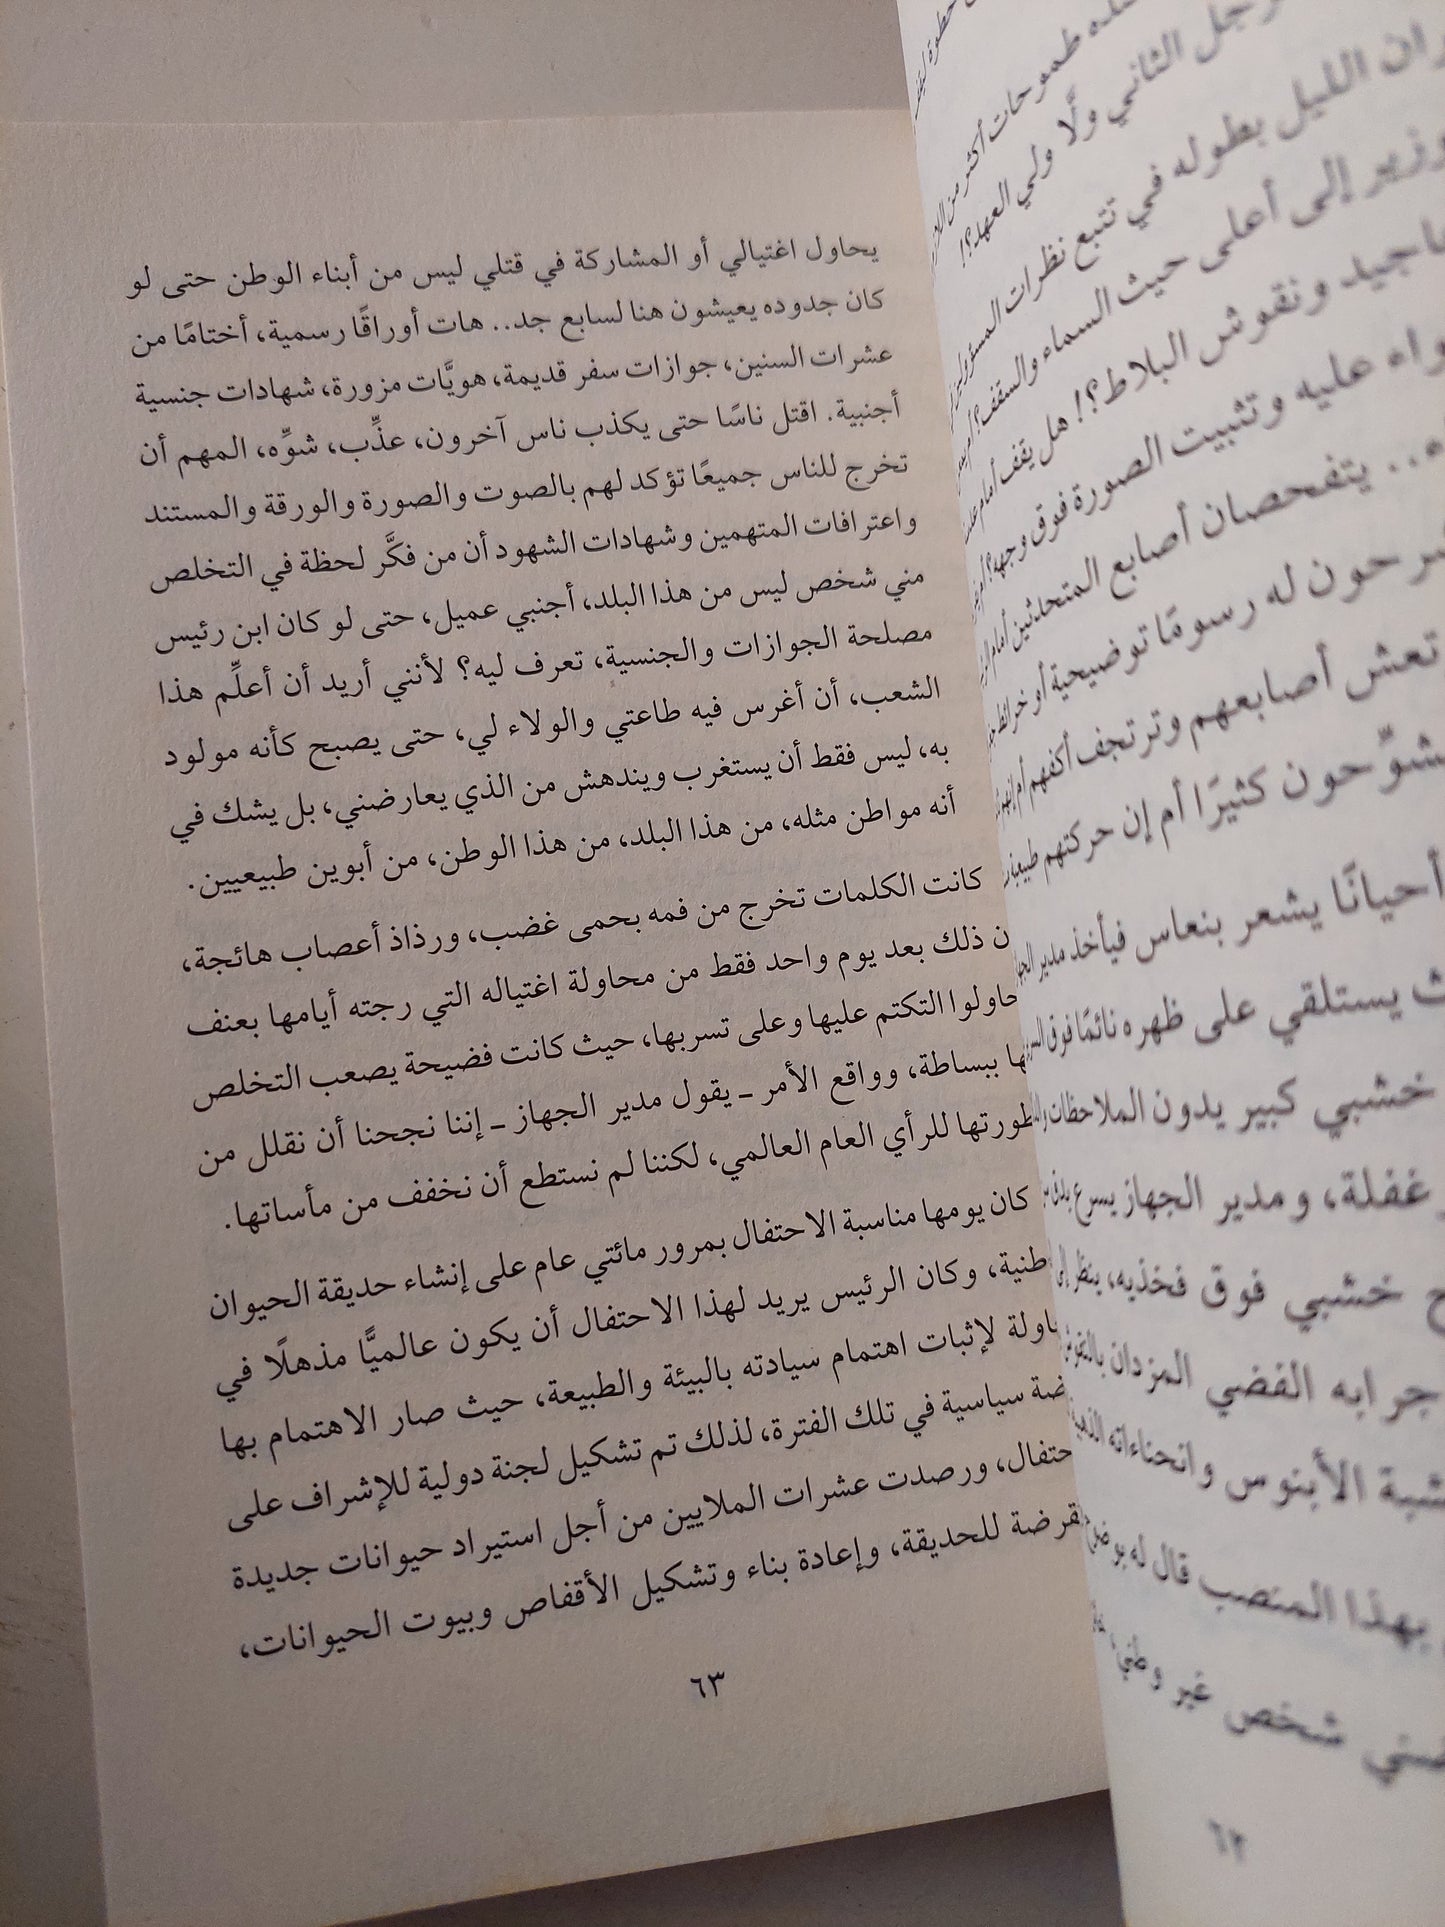 حطوة
طموحات أكثر من
الثاني ولَّا ولي العهد؟!
الليل بطوله في تتبع نظرات
وزير إلى أعلى حيث السماء والسقف؟
ونقوش البلاط؟! هل يقف أمام
عليه وتثبيت الصورة فوق وجهه؟
يتفحصان أصابع المتحدثين أمام
له رسومًا توضيحية أو خرائط
أصابعهم وترتجف أكفهم أم إنهم
كثيرًا أم إن حركتهم طبيعية
أحيانًا يشعر بنعاس فيأخذ مدير
يستلقي على ظهره نائمًا فوق
خشبي كبير يدون الملاحظات
غفلة، ومدير الجهاز يسرع
خشبي فوق فخذيه، ينظر إلى
جرابه الفضي المزدان
الأبنوس وانحناءاته
بهذا المنصب قال له
شخص غير وطني،
٦٢
يحاول اغتيالي أو المشاركة في قتلي ليس من أبناء الوطن حتى لو
كان جدوده يعيشون هنا لسابع جد.. هات أوراقًا رسمية، أختامًا من
عشرات السنين، جوازات سفر قديمة، هويَّات مزورة، شهادات جنسية
أجنبية. اقتل ناسًا حتى يكذب ناس آخرون، عذِّب، شوِّه، المهم أن
تخرج للناس جميعًا تؤكد لهم بالصوت والصورة والورقة والمستند
واعترافات المتهمين وشهادات الشهود أن من فكَّر لحظة في التخلص
مني شخص ليس من هذا البلد، أجنبي عميل، حتى لو كان ابن رئيس
مصلحة الجوازات والجنسية، تعرف ليه؟ لأنني أريد أن أعلِّم هذا
الشعب، أن أغرس فيه طاعتي والولاء لي، حتى يصبح كأنه مولود
به، ليس فقط أن يستغرب ويندهش من الذي يعارضني، بل يشك في
أنه مواطن مثله، من هذا البلد، من هذا الوطن، من أبوين طبيعيين.
كانت الكلمات تخرج من فمه بحمى غضب، ورذاذ أعصاب هائجة،
ذلك بعد يوم واحد فقط من محاولة اغتياله التي رجته أيامها بعنف
حاولوا التكتم عليها وعلى تسربها، حيث كانت فضيحة يصعب التخلص
ببساطة، وواقع الأمر ـ يقول مدير الجهاز ـ إننا نجحنا أن نقلل من
للرأي العام العالمي، لكننا لم نستطع أن نخفف من مأساتها.
كان يومها مناسبة الاحتفال بمرور مائتي عام على إنشاء حديقة الحيوان
وكان الرئيس يريد لهذا الاحتفال أن يكون عالميًّا مذهلًا في
لإثبات اهتمام سيادته بالبيئة والطبيعة، حيث صار الاهتمام بها
سياسية في تلك الفترة، لذلك تم تشكيل لجنة دولية للإشراف على
ورصدت عشرات الملايين من أجل استيراد حيوانات جديدة
للحديقة، وإعادة بناء وتشكيل الأقفاص وبيوت الحيوانات،
٦٣